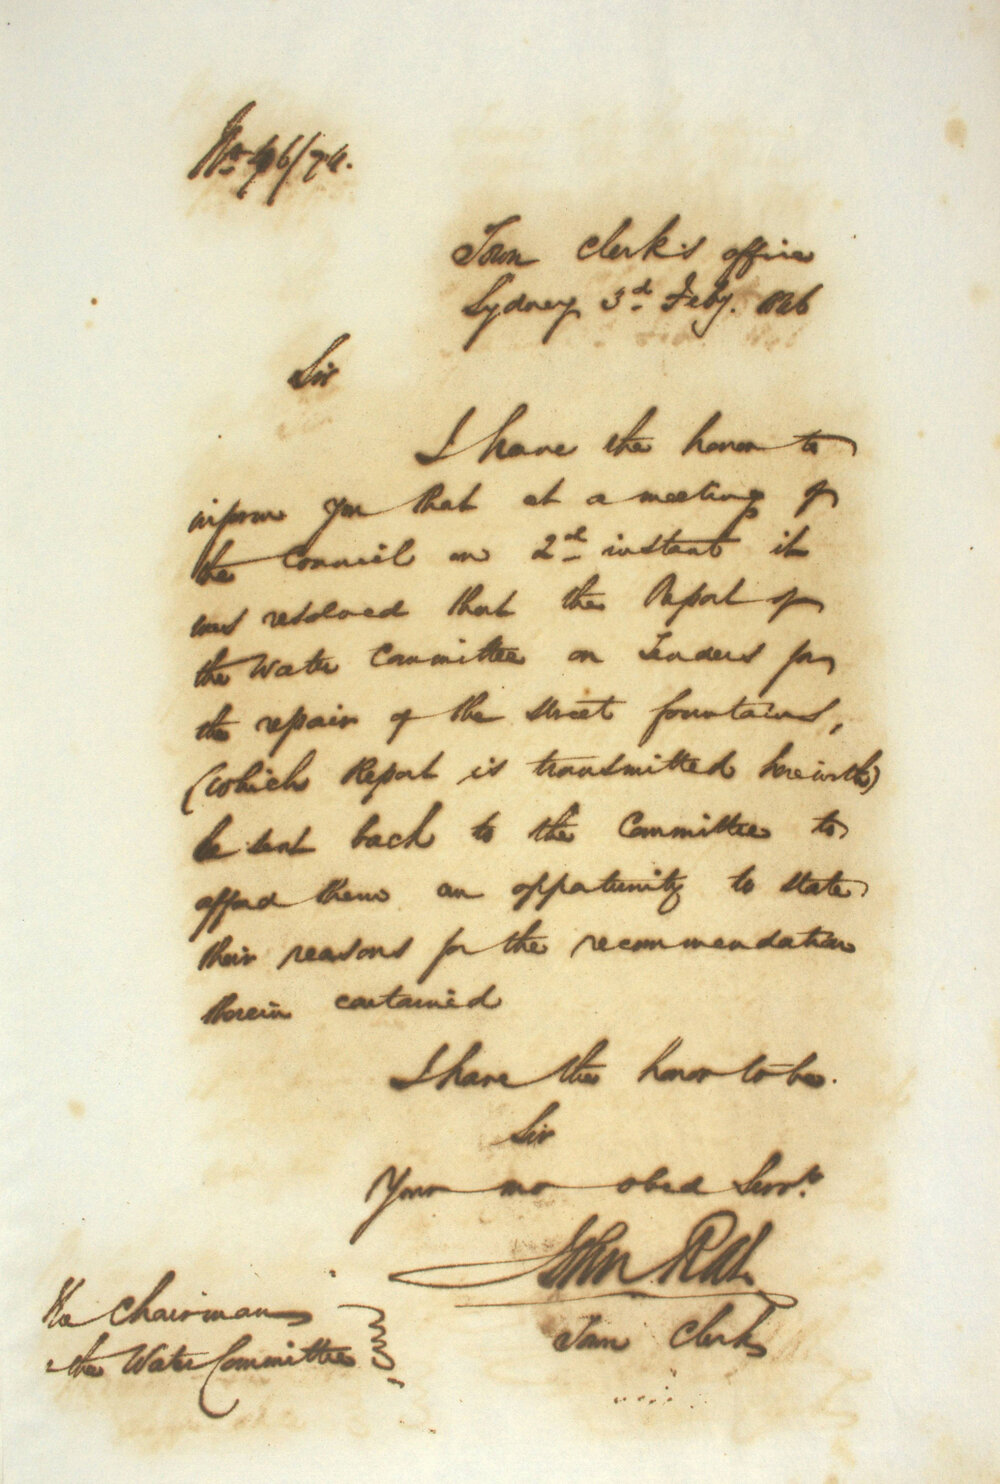 No. 46/74.
Town Clerk's office
Sydney 3d Feby. 1846
Sir
I have the honor to
inform you that at a meeting of
the Council on 2d instant it
was resolved that the Report of
the Water Committee on Tenders for
the repair of the street fountains,
(which Report is transmitted herewith)
be sent back to the Committee to
afford them an opportunity to state
their reasons for the recommendation
therein contained
I have the honor to be.
Sir
Your mo obed Servt.
John Rae
Town Clerk
The Chairman
the Water Committee